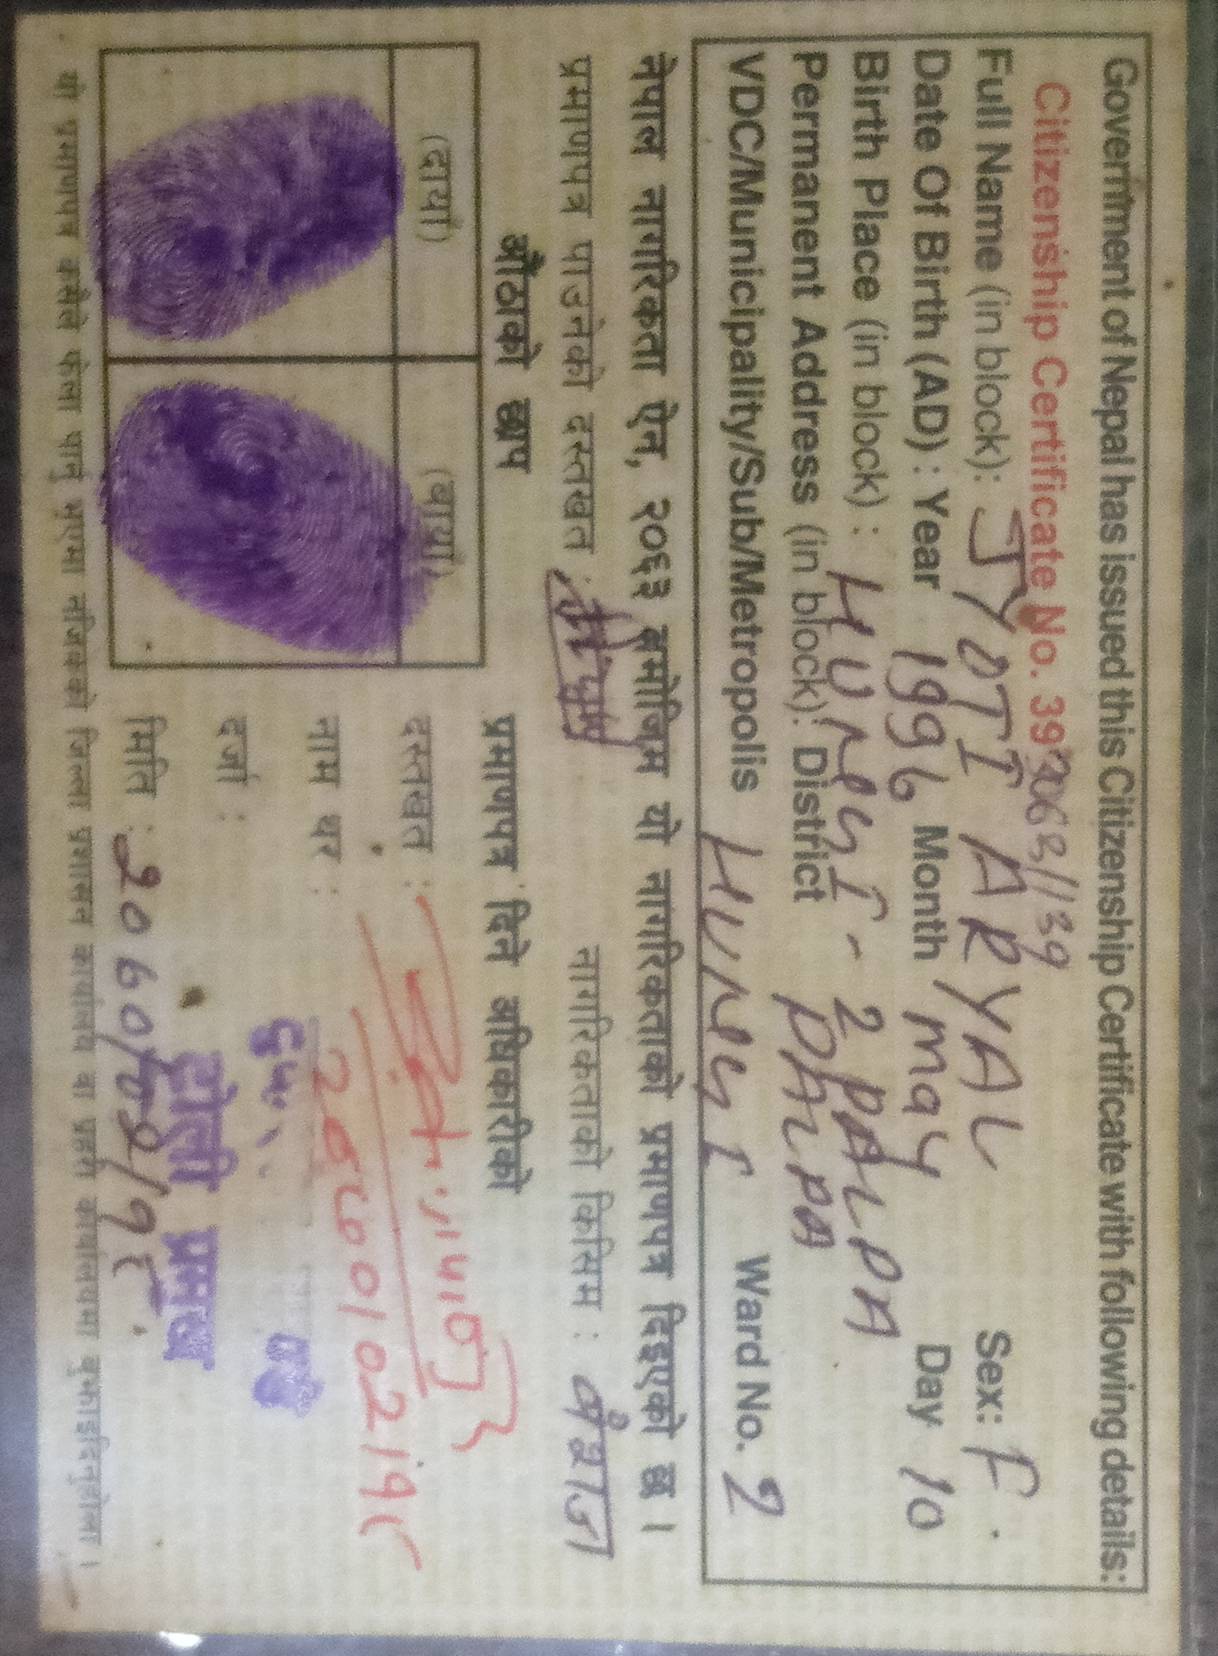 Government of Nepal has issued this Citizenship Certificate with following details:
Citizenship Certificate No. 393068/139
Full Name (in block): JYOTI ARYAL Sex: F.
Date Of Birth (AD) : Year 1996 Month may Day 10
Birth Place (in block) : HUNGI - 2 PALPA
Permanent Address (in block): District PALPA
VDC/Municipality/Sub/Metropolis HUNGI Ward No. 2
नेपाल नागरिकता ऐन, २०६३ बमोजिम यो नागरिकताको प्रमाणपत्र दिइएको छ ।
प्रमाणपत्र पाउनेको दस्तखत : नागरिकताको किसिम : वंशज
औंठाको छाप
(दायाँ) (बायाँ)
प्रमाणपत्र दिने अधिकारीको
दस्तखत :
नाम थर :
दर्जा : टोली प्रमुख
मिति :
यो प्रमाणपत्र कसैले फेला पार्नु भएमा नजिकको जिल्ला प्रशासन कार्यालय वा प्रहरी कार्यालयमा बुझाइदिनुहोला ।